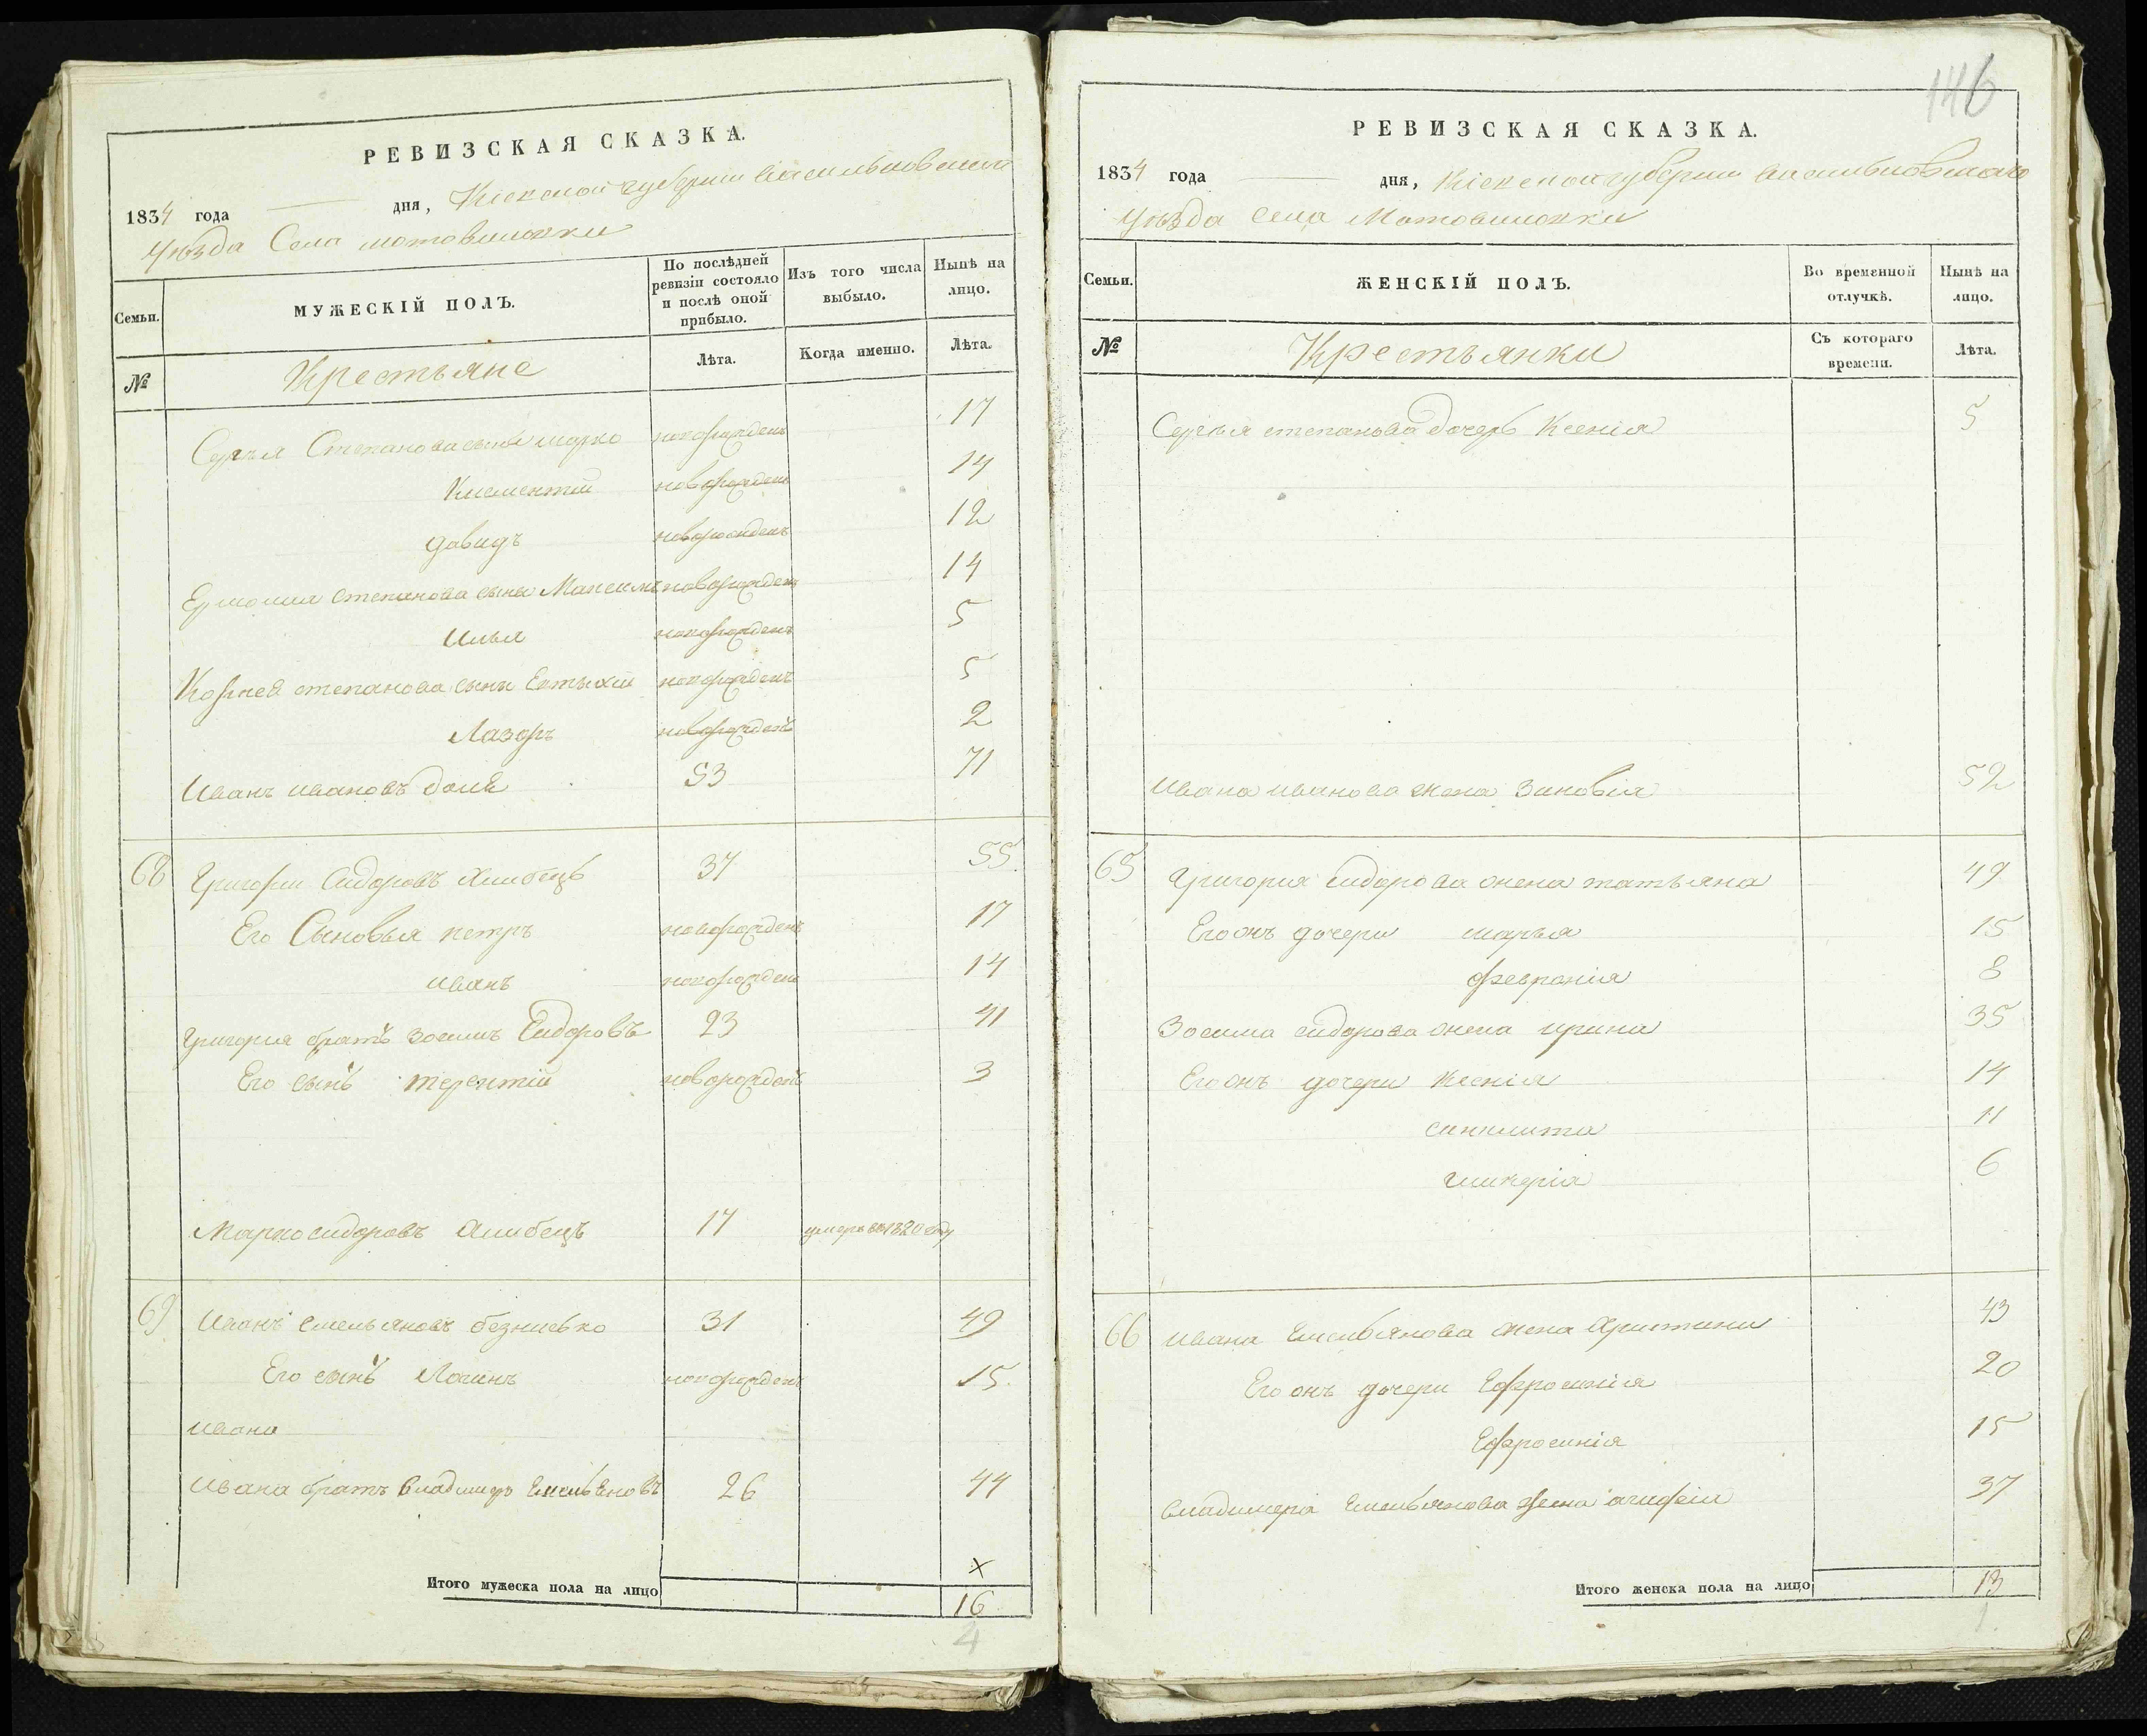 РЕВИЗСКАЯ СКАЗКА.
1834 года дня, Кіевской губерніи Васильковскаго
уѣзда Села мотовиловки
Семьи.
МУЖЕСКІЙ ПОЛЪ.
По послѣдней ревизіи состояло и послѣ оной прибыло.
Изъ того числа выбыло.
Нынѣ на лицо.
№
Крестьяне
Лѣта.
Когда именно.
Лѣта.
Сергѣя Степанова сыны марко новорожденъ 17
Климентій новорожденъ 14
давидъ новорожденъ 12
степанова сыны Максимъ новорожденъ 14
илья новорожденъ 5
Корнея степанова сыны Евтыхій новорожденъ 5
Лазорь новорожденъ 2
Иванъ ивановъ 53 71
68 Григорій Сидоровъ 37 55
Его Сыновья петръ новорожденъ 17
иванъ новорожденъ 14
Григорія братъ зосимъ Сидоровъ 23 41
Его сынъ терентій новорожденъ 3
Марко сидоровъ 17 умеръ въ 1820 году
69 Иванъ емельяновъ 31 49
Его сынъ Логинъ новорожденъ 15
ивана
ивана братъ владимиръ Емельяновъ 26 44
х
Итого мужеска пола на лицо 16
4
146
РЕВИЗСКАЯ СКАЗКА.
1834 года дня, Кіевской губерніи васильковскаго
уѣзда села Мотовиловки
Семьи.
ЖЕНСКІЙ ПОЛЪ.
Во временной отлучкѣ.
Нынѣ на лицо.
№
Крестьянки
Съ котораго времени.
Лѣта.
Сергѣя степанова дочерь Ксенія 5
ивана иванова жена Зиновія 52
65 Григорія сидорова жена татьяна 49
Его онъ дочери марья 15
февронія 8
Зосима сидорова жена ирина 35
Его онъ дочери Ксенія 14
синклита 11
гликерія 6
66 ивана Емельянова жена Христина 43
Его онъ дочери Ефросинія 20
Ефросинія 15
владимера Емельянова жена 37
Итого женска пола на лицо 13